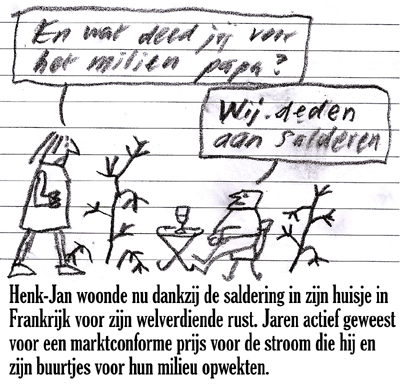 En wat deed jij voor
het milieu papa?
Wij deden
aan salderen
Henk-Jan woonde nu dankzij de saldering in zijn huisje in
Frankrijk voor zijn welverdiende rust. Jaren actief geweest
voor een marktconforme prijs voor de stroom die hij en
zijn buurtjes voor hun milieu opwekten.